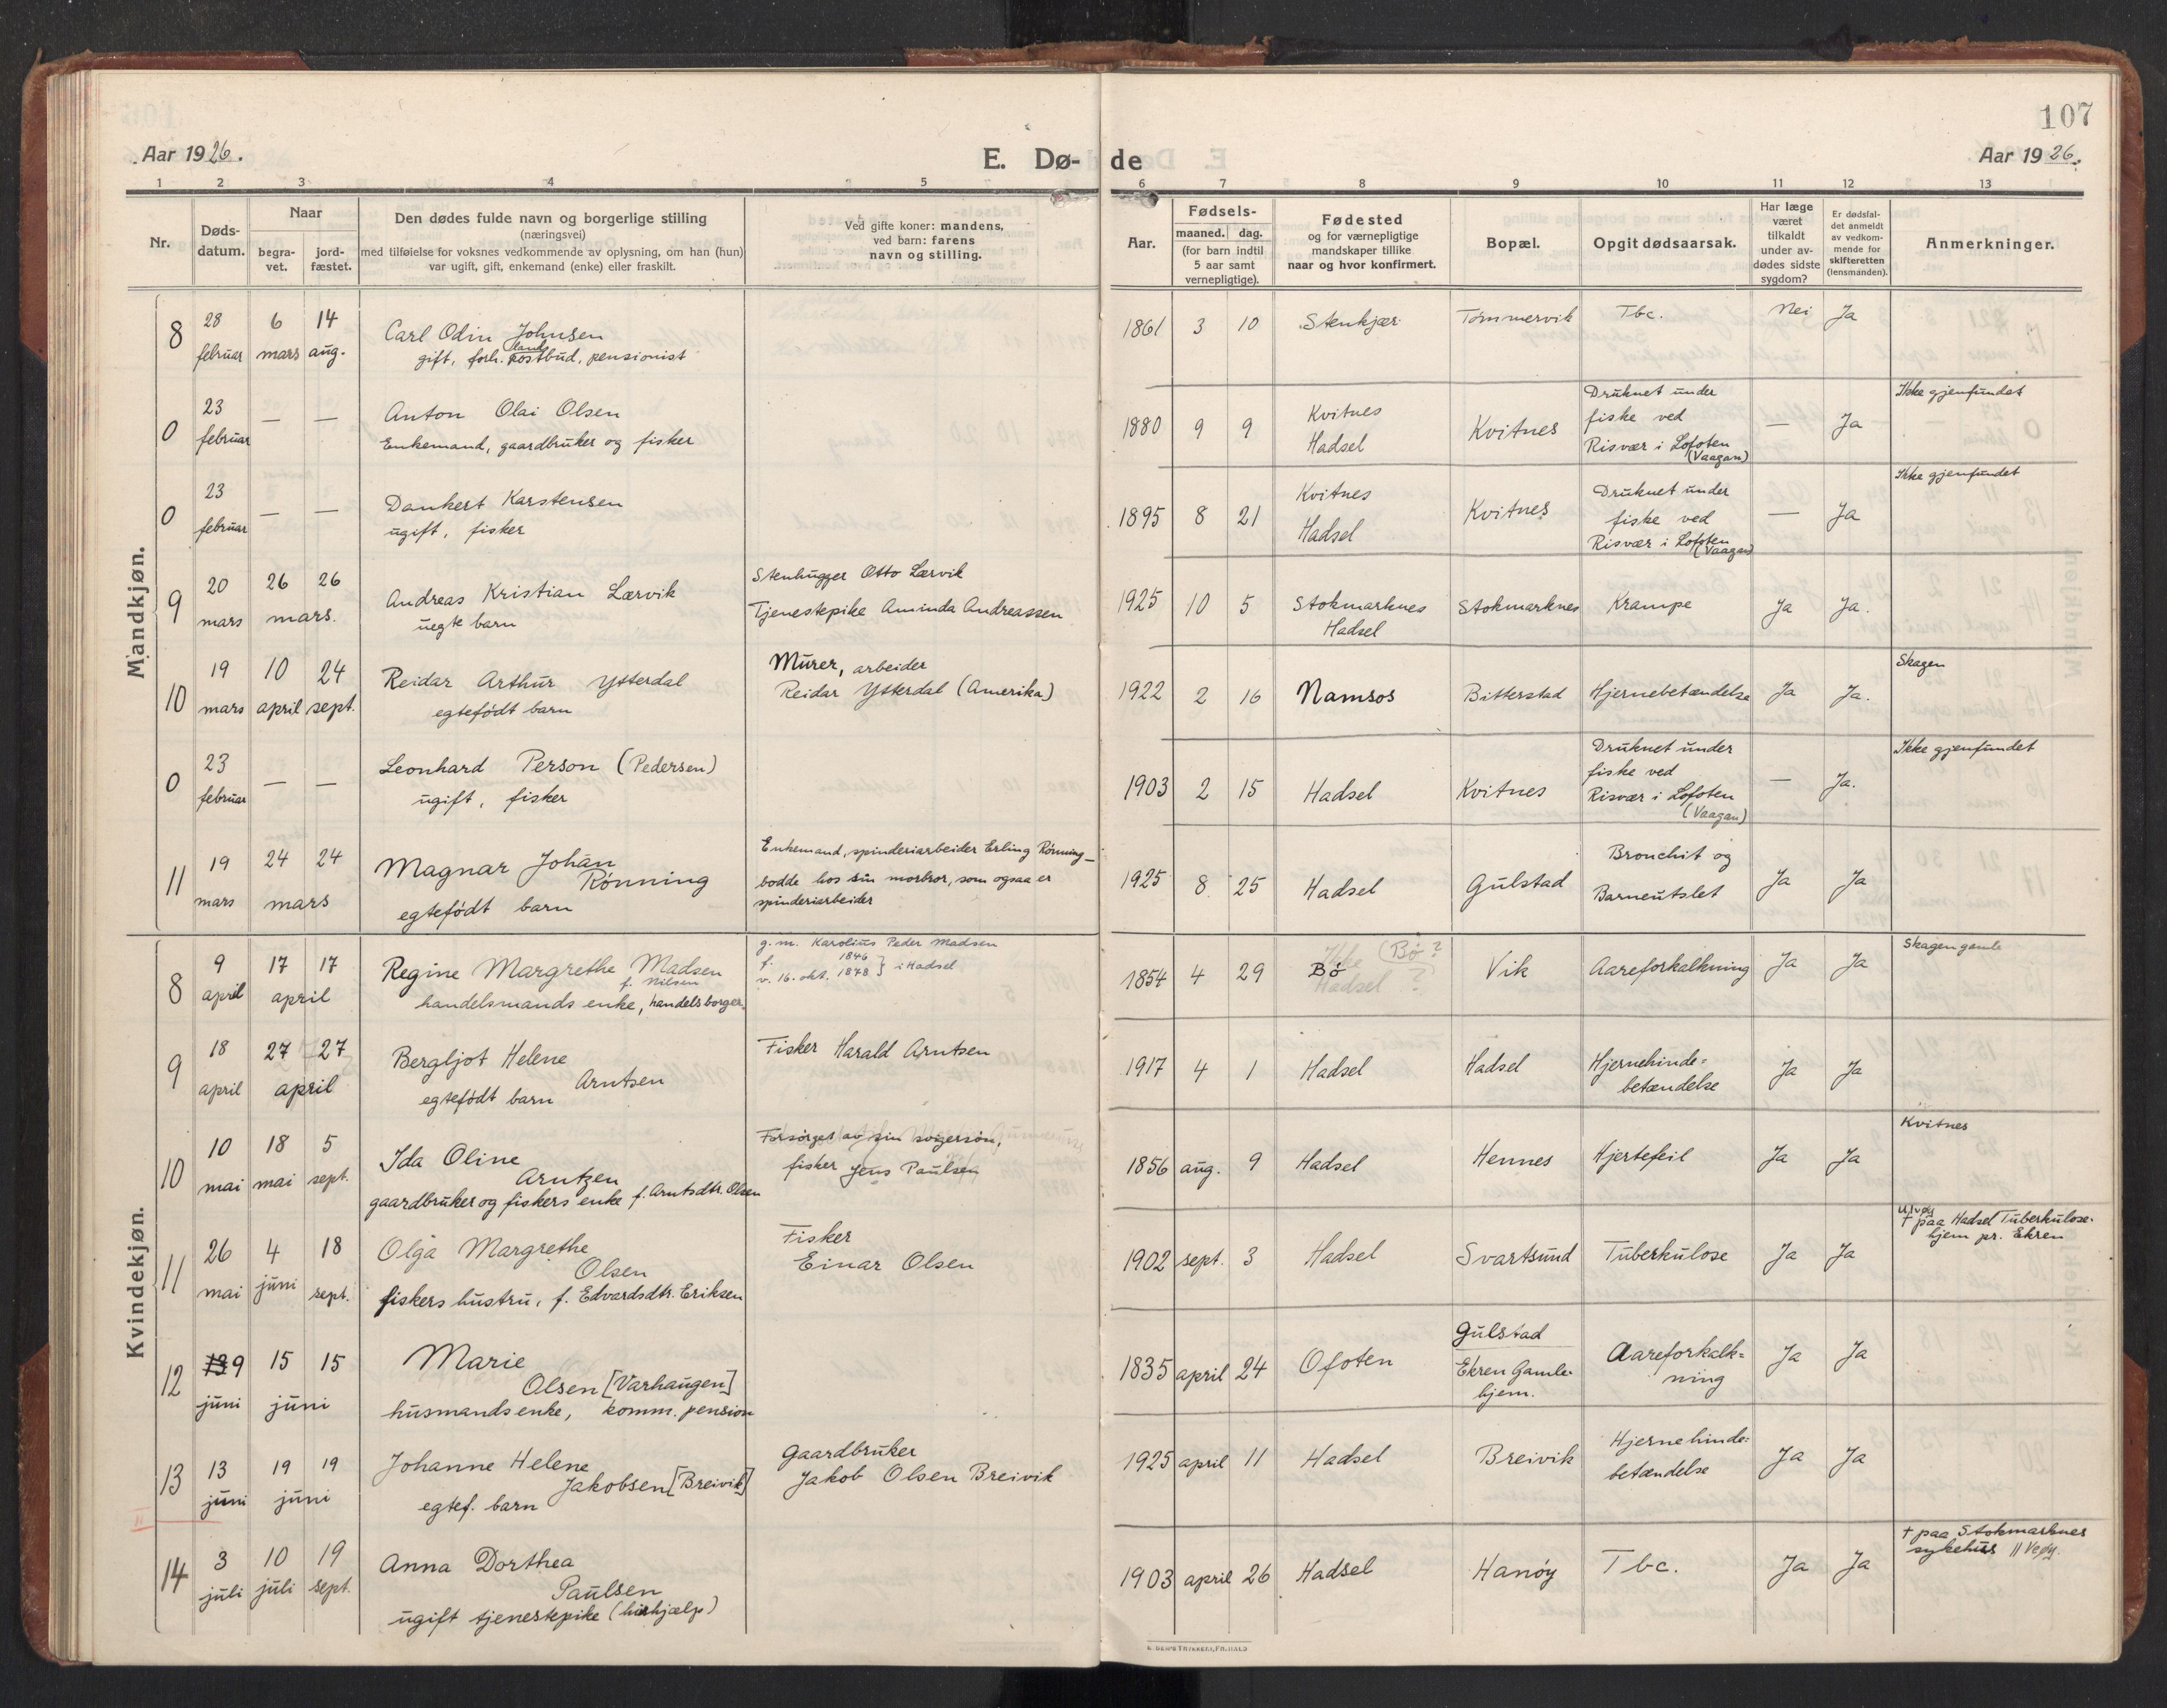 107
Aar 1926.
E. Dø-
de
Aar 1926.
1 2 3 4 5 6 7 8 9 10 11 12 13
Nr.
Døds-
datum.
Naar
begra-
vet.
jord-
fæstet.
Den dødes fulde navn og borgerlige stilling
(næringsvei)
med tilføielse for voksnes vedkommende av oplysning, om han (hun)
var ugift, gift, enkemand (enke) eller fraskilt.
Ved gifte koner: mandens,
ved barn: farens
navn og stilling.
Aar.
Fødsels-
maaned. dag.
(for barn indtil
5 aar samt
vernepligtige).
Fødested
og for værnepligtige
mandskaper tillike
naar og hvor konfirmert.
Bopæl.
Opgit dødsaarsak.
Har læge
været
tilkaldt
under av-
dødes sidste
sygdom?
Er dødsfal-
det anmeldt
av vedkom-
mende for
skifteretten
(lensmanden).
Anmerkninger.
Mandkjøn.
8
28
februar
6
mars
14
aug.
Carl Odin Johnsen
land
gift, forh. postbud, pensionist
1861 3 10 Stenkjær Tømmervik Tbc. Nei Ja
0
23
februar
— —
Anton Olai Olsen
Enkemand, gaardbruker og fisker
1880 9 9
Kvitnes
Hadsel
Kvitnes
Druknet under
fiske ved
Risvær i Lofoten
(Vaagan)
— Ja
Ikke gjenfundet
0
23
februar
— —
Dankert Karstensen
ugift, fisker
1895 8 21
Kvitnes
Hadsel
Kvitnes
Druknet under
fiske ved
Risvær i Lofoten
(Vaagan)
— Ja
Ikke gjenfundet
9
20
mars
26 26
mars.
Andreas Kristian Lærvik
uegte barn
Stenhugger Otto Lærvik
Tjenestepike Aminda Andreassen
1925 10 5
Stokmarknes
Hadsel
Stokmarknes Krampe Ja Ja.
10
19
mars
10
april
24
sept.
Reidar Arthur Ytterdal
egtefødt barn
Murer, arbeider
Reidar Ytterdal (Amerika)
1922 2 16 Namsos Bitterstad Hjernebetændelse Ja Ja.
Skagen
0
23
februar
— —
Leonhard Person (Pedersen)
ugift, fisker
1903 2 15 Hadsel Kvitnes
Druknet under
fiske ved
Risvær i Lofoten
(Vaagan)
— Ja.
Ikke gjenfundet
11
19
mars
24 24
mars
Magnar Johan
Rønning
egtefødt barn
Enkemand, spinderiarbeider Erling Rønning —
bodde hos sin morbror, som ogsaa er
spinderiarbeider
1925 8 25 Hadsel Gulstad
Bronchit og
Barneutslet
Ja Ja
Kvindekjøn.
8
9
april
17 17
april
Regine Margrethe Madsen
f. Nilsen
handelsmands enke, handelsborger.
g. m. Karolius Peder Madsen
f. 1846
v. 16. okt. 1878 } i Hadsel
1854 4 29
Ikke (Bø?
Bø
Hadsel ?
Vik Aareforkalkning Ja Ja
Skagen gamle
9
18
april
27 27
april
Bergljot Helene
Arntsen
egtefødt barn
Fisker Harald Arntsen
1917 4 1 Hadsel Hadsel
Hjernehinde-
betændelse
Ja Ja
10
10
mai
18
mai
5
sept.
Ida Oline
Arntzen
gaardbruker og fiskers enke f. Arntsdtr. Olsen
Forsørget av sin svigersøn,
fisker Jens Paulsen
1856 aug. 9 Hadsel Hennes Hjertefeil Ja Ja
Kvitnes
11
26
mai
4
juni
18
sept.
Olga Margrethe
Olsen
fiskers hustru, f. Edvardsdtr. Eriksen
Fisker
Einar Olsen
1902 sept. 3 Hadsel Svartsund Tuberkulose Ja Ja
+ paa Hadsel Tuberkulose-
hjem pr. Ekren
12
13 9
juni
15 15
juni
Marie
Olsen [Varhaugen]
husmandsenke, komm. pension
1835 april 24 Ofoten
Gulstad
Ekren Gamle-
hjem.
Aareforkalk-
ning
Ja Ja
13
13
juni
19 19
juni
Johanne Helene
Jakobsen [Breivik]
egtef. barn
Gaardbruker
Jakob Olsen Breivik
1925 april 11 Hadsel Breivik
Hjernehinde-
betændelse
Ja Ja
14
3
juli
10
juli
19
sept.
Anna Dorthea
Paulsen
ugift tjenestepike (hushjælp)
1903 april 26 Hadsel Hanøy Tbc. Ja Ja
+ paa Stokmarknes
sykehus